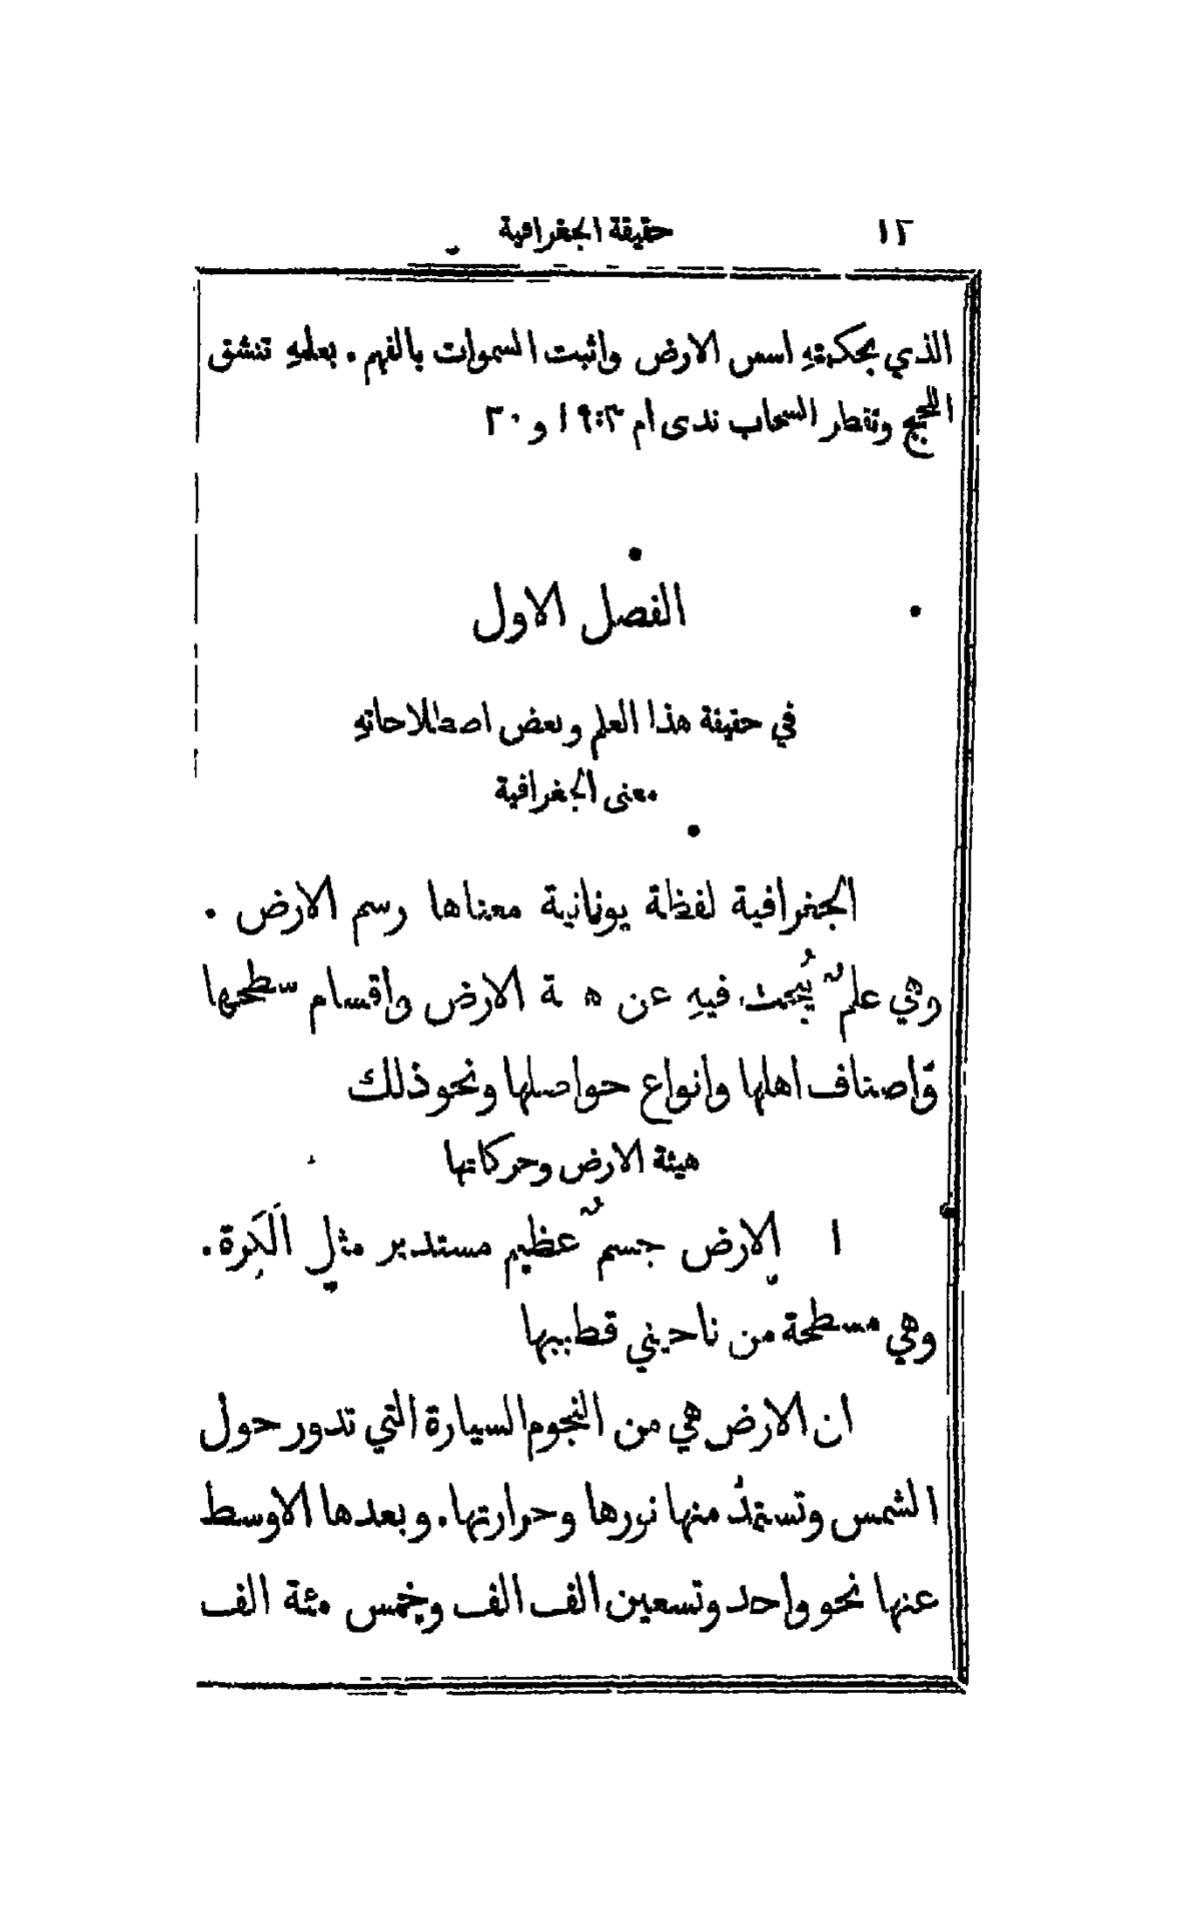 ١٢ حقيقة الجغرافية
الذي بحكمتهِ اسس الارض واثبت السموات بالفهم. بعلمهِ تنشق
اللجج وتقطر السحاب ندى ام ١٩:٣ و ٢٠
الفصل الاول
في حقيقة هذا العلم وبعض اصطلاحاتهِ
معنى الجغرافية
الجغرافية لفظة يونانية معناها رسم الارض.
وهي علمٌ يُبحث فيهِ عن الارض واقسام سطحها
واصناف اهلها وانواع حواصلها ونحو ذلك
هيئة الارض وحركاتها
١ الارض جسمٌ عظيم مستدير مثل الكرة.
وهي مسطحة من ناحيتي قطبيها
ان الارض هي من النجوم السيارة التي تدور حول
الشمس وتستمدُّ منها نورها وحرارتها. وبعدها الاوسط
عنها نحو واحد وتسعين الف الف وخمس مئة الف